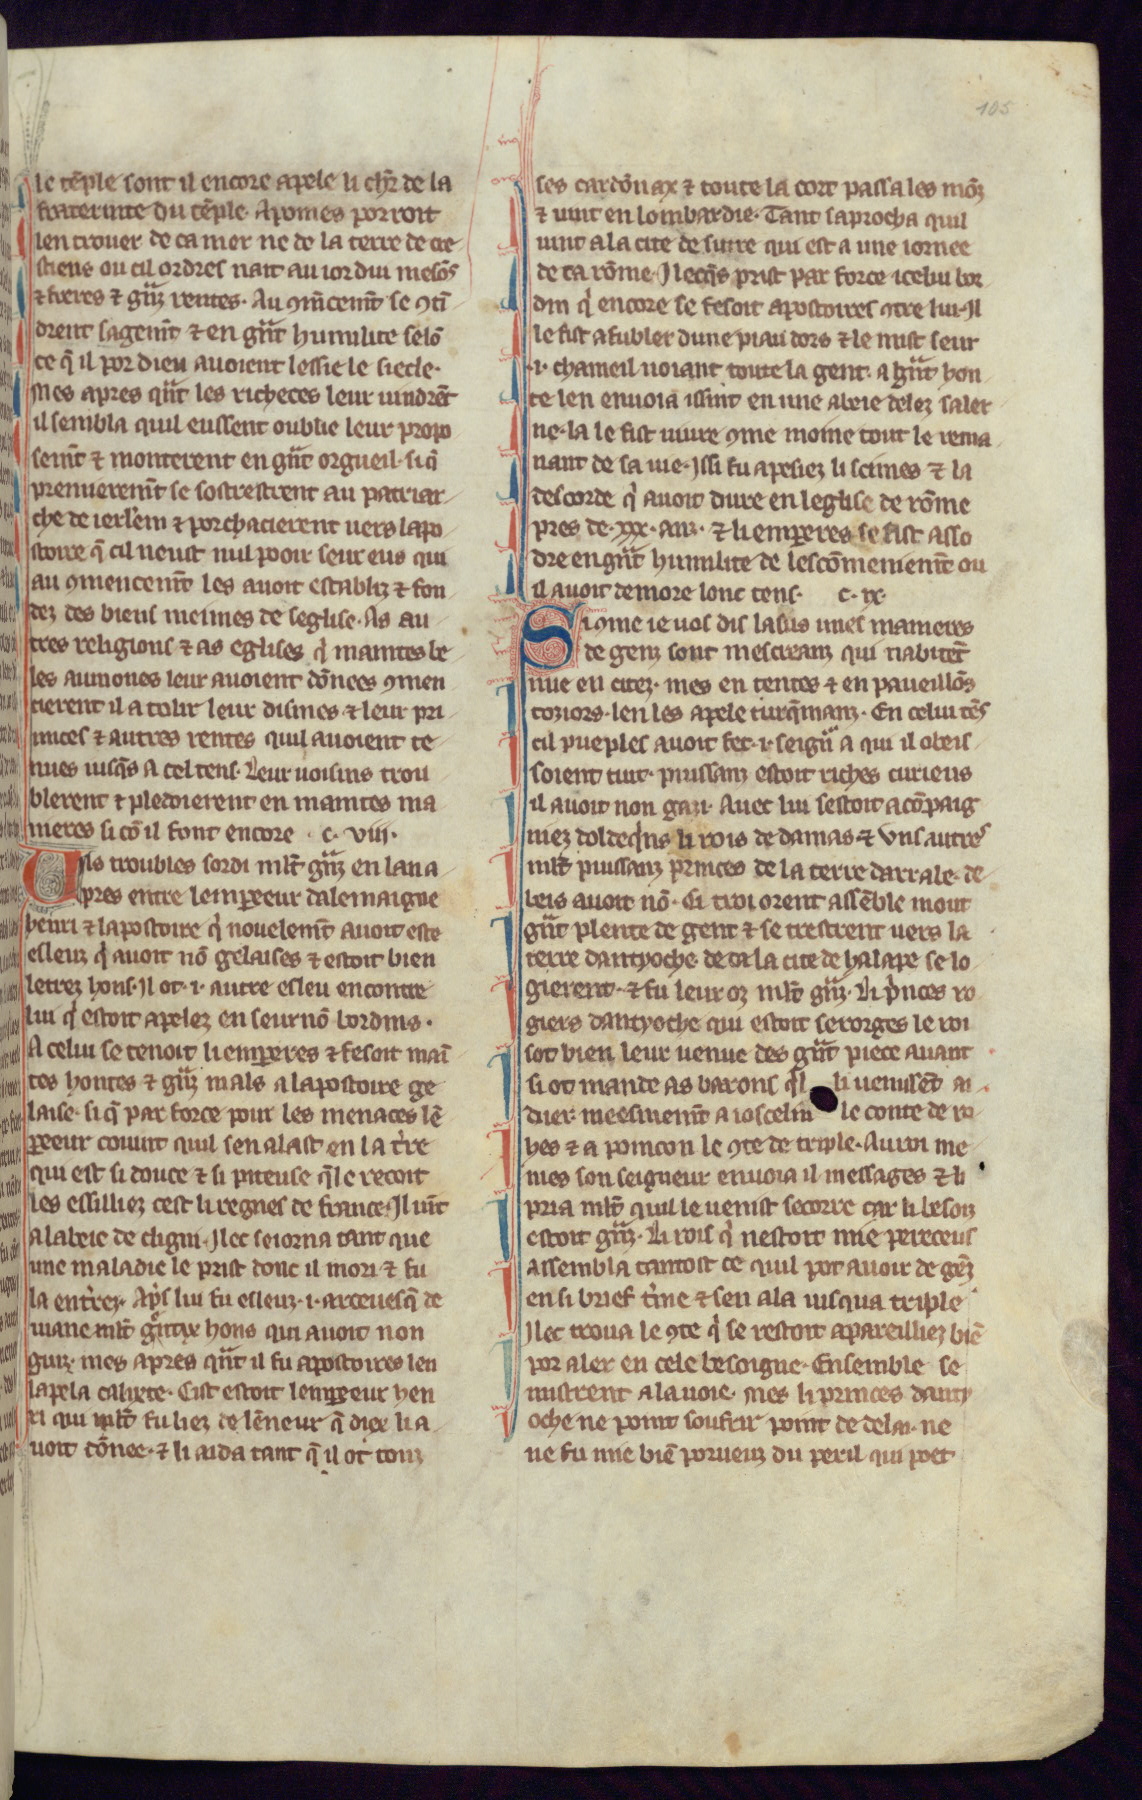 105
le te᷑ple sont il encore apele li ch᷑r de la
fraternite du te᷑ple. Apoines porroit
len trouer de ca mer ne de la terre de cre
stiens ou cil ordres nait au ior dui mesōs
⁊ freres ⁊ gñz rentes. Au ꝯmēcemt̄ se ꝯtī
drent sagemt̄ ⁊ en gñt humilite selō
ce q̄ il por dieu auoient lessie le siecle.
Mes apres qñt les richeces leur uindrēt
il sembla quil eussent oublie leur propo
semt̄ ⁊ monterent en gñt orgueil. si q̄
premieremt̄ se sostrestrent au patriar
che de ierlem̄ ⁊ porchacierent uers lapo
stoire q̄ cil neust nul pooir seur eus qui
au ꝯmencemt̄ les auoit establiz ⁊ fon
dez des biens meimes de seglise. As au
tres religions ⁊ as eglises q̇ maintes be
les aumones leur auoient dōnees ꝯmen
cierent il a tolir leur dismes ⁊ leur pri
mices ⁊ autres rentes quil auoient te
nues iusq̄s a cel tens. Leur uoisins trou
blerent ⁊ pledoierent en maintes ma
nieres si cō il font encore. c. viii.
Uns troubles sordi mlt̄ gñz en lan a
pres entre lempereeur dalemaigne
henri ⁊ lapostoire q̇ nouelemt̄ auoit este
esleuz q̇ auoit nō gelaises ⁊ estoit bien
letrez hons. Il ot .i. autre esleu encontre
lui q̇ estoit apelez en seurnō bordins.
A celui se tenoit li emperes ⁊ fesoit maī
tes hontes ⁊ gñz mals a lapostoire ge
laise. si q̄ par force pour les menaces lē
pereeur couint quil sen alast en la tr̄re
qui est si douce ⁊ si piteuse q̄le recoit
les essilliez cest li regnes de france. Il uīt
a labeie de cligni. Ilec seiorna tant que
une maladie le prist donc il mori ⁊ fu
la entr̄rez. Ap̄s lui fu esleuz .i. arceuesq̄ de
uiane mlt̄ gentix hons qui auoit non
guiz. mes apres qñt il fu apostoires len
lapela calixte. Cist estoit lempereeur hen
ri qui mlt̄ fu liez de lēneur q̄ diex li a
uoit dōnee. ⁊ li aida tant q̄ il ot touz
ses cardōnax ⁊ toute la cort passa les mōz
⁊ uint en lombardie. Tant saprocha quil
uint a la cite de sutre qui est a une iornee
de ca rōme. Ilecq̄s prist par force icelui bor
din q̇ encore se fesoit apostoires ꝯtre lui. Il
le fist afubler dune piau dors ⁊ le mist seur
.i. chameil uoiant toute la gent. a gñt hon
te len enuoia issint en une abeie delez saler
ne. la le fist uiure ꝯme moine tout le rema
nant de sa uie. Issi fu apesiez li scimes ⁊ la
descorde q̇ auoit dure en leglise de rōme
pres de .xxx. anz. ⁊ li emperes se fist asso
dre en gñt humilite de lescōmeniemt̄ ou
il auoit demore lonc tens. c. ix.
Si ꝯme ie uos dis lasus unes manieres
de genz sont mescreanz qui nabitēt
mie en citez. mes en tentes ⁊ en paueillōs
toziors. len les apele turq̄manz. En celui tēs
cil pueples auoit fet .i. seignr̄ a qui il obeis
soient tuit. puissanz estoit riches turiens
il auoit non gazi. Auec lui sestoit acōpaig
niez doldeq̄ns li rois de damas ⁊ uns autres
mlt̄ puissanz princes de la terre darrabe. de
beis auoit nō. Ci troi orent assēble mout
gñt plente de gent ⁊ se trestrent uers la
terre dantyoche. de ca la cite de halape se lo
gierent. ⁊ fu leur oz mlt̄ gñz. Li p̄nces ro
giers dantyoche qui estoit serorges le roi
sot bien leur uenue des gñt piece auant
si ot mande as barons q̄l li uenissēt ai
dier. meesmemt̄ a ioscelin le conte de ro
hes ⁊ a poincon le ꝯte de triple. Au roi me
mes son seigneur enuoia il messages ⁊ li
pria mlt̄ quil le uenist secorre car li besoīz
estoit gñz. Li rois q̇ nestoit mie pereceus
assembla tantost ce quil pot auoir de gēz
en si brief tr̄me ⁊ sen ala iusqua triple
Ilec troua le ꝯte q̇ se restoit apareilliez biē
por aler en cele besoigne. Ensemble se
mistrent a la uoie. Mes li princes danty
oche ne point soufrir point de delai. ne
ne fu mie biē porueuz du peril qui poet